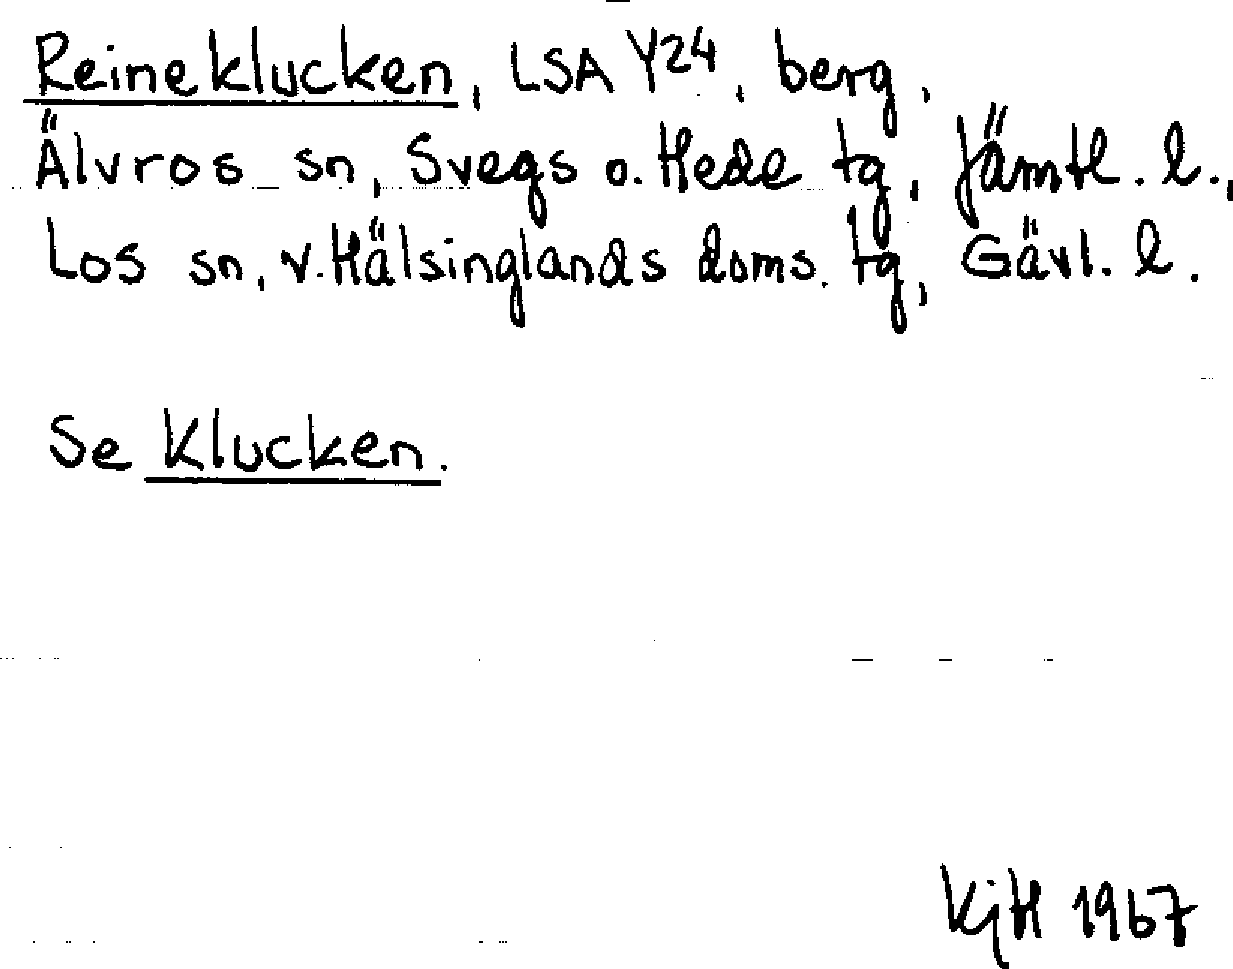 Reineklucken, LSA Y24, berg,
Älvros sn, Svegs o. Hede tg, Jämtl. l.,
Los sn, v. Hälsinglands doms. tg, Gävl. l.
Se Klucken.
KjH 1967